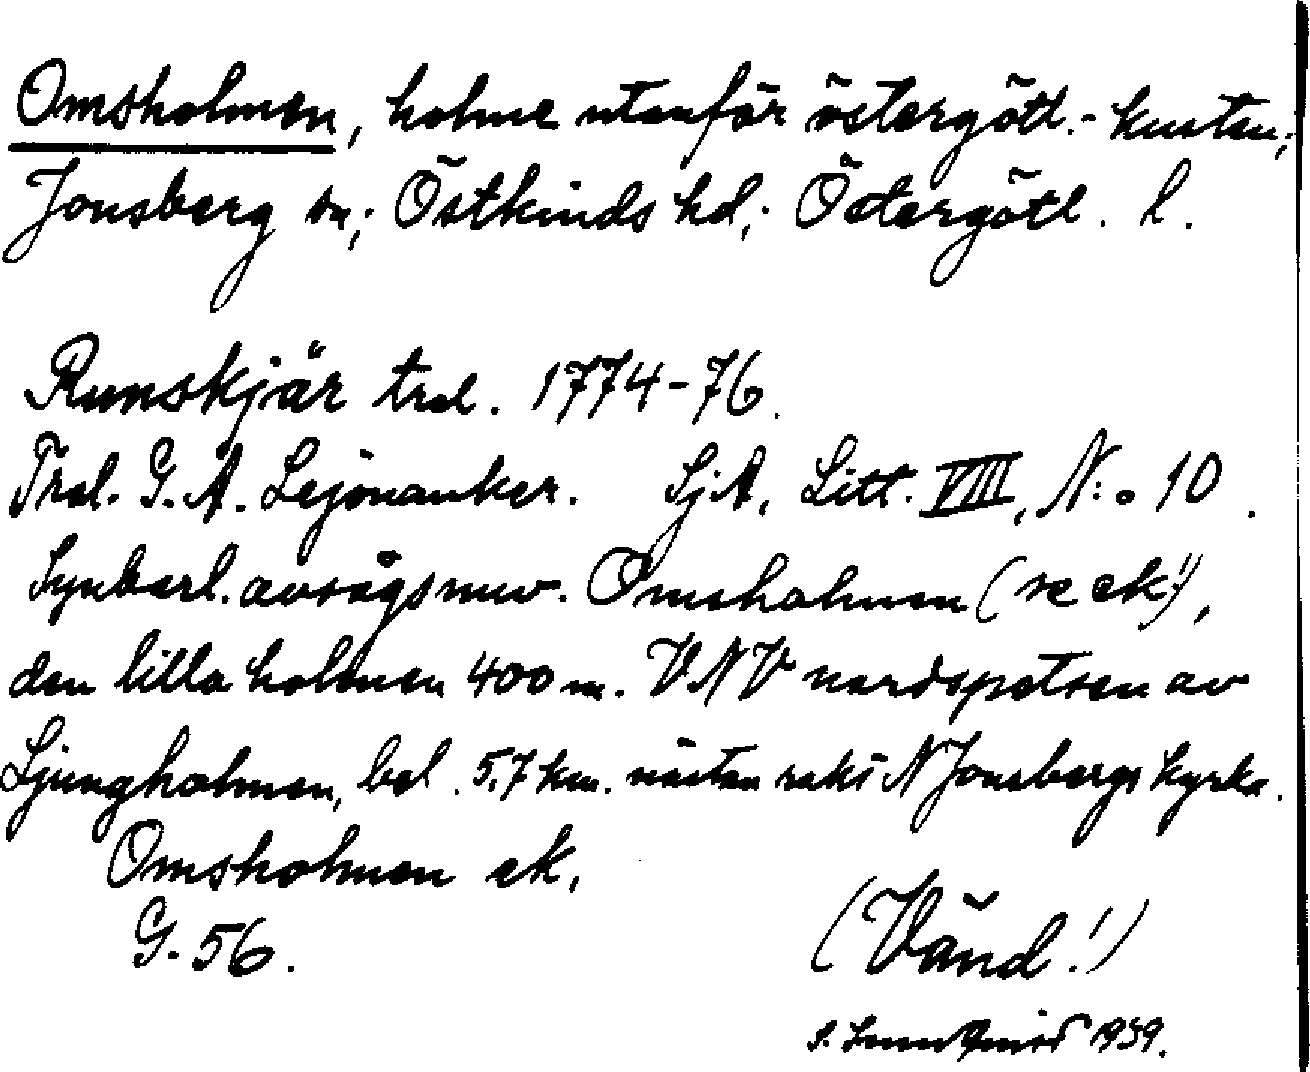 Omsholmen, holme utanför östergötl.-kusten;
Jonsberg sn; Östkinds hd; Östergötl. l.
Rumskjär trol. 1774-76.
Trol. G. A. Lejonanker. SjA, Litt. VIII, N:o 10.
Synbarl. avsågs nuv. Omsholmen (se ek!),
den lilla holmen 400 m. VNV nordspetsen av
Ljungholmen, bel. 5,7 km. nästan rakt N Jonsbergs kyrka.
Omsholmen ek,
G. 56.
(Vänd!)
1939.